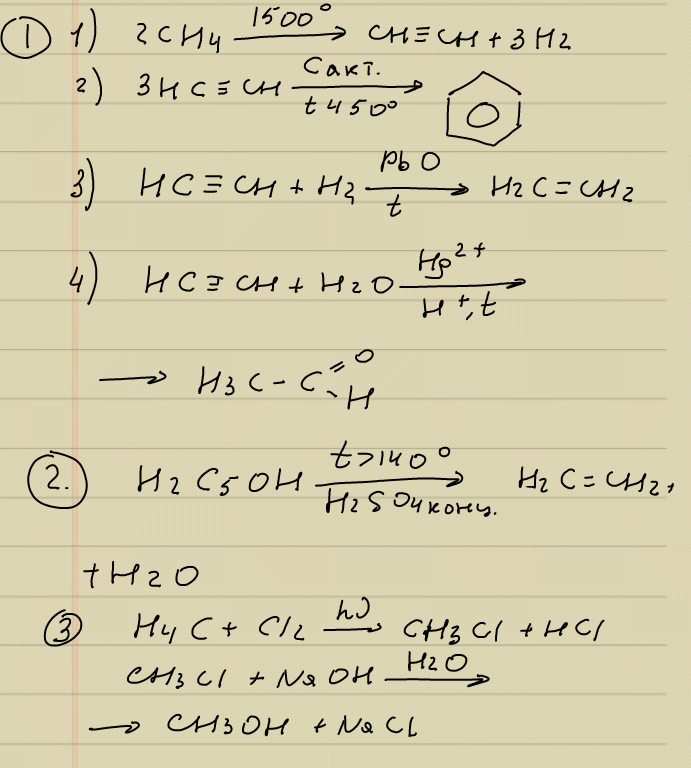 ① 1) 2CH4 —1500°→ CH≡CH + 3H2
2) 3HC≡CH —Cакт. / t 450°→
3) HC≡CH + H2 —PbO / t→ H2C=CH2
4) HC≡CH + H2O —Hg²⁺ / H⁺, t→
→ H3C-C=O -H
②. H2C5OH —t>140° / H2SO4 конц.→ H2C=CH2 +
+ H2O
③ H4C + Cl2 —hν→ CH3Cl + HCl
CH3Cl + NaOH —H2O→
→ CH3OH + NaCl